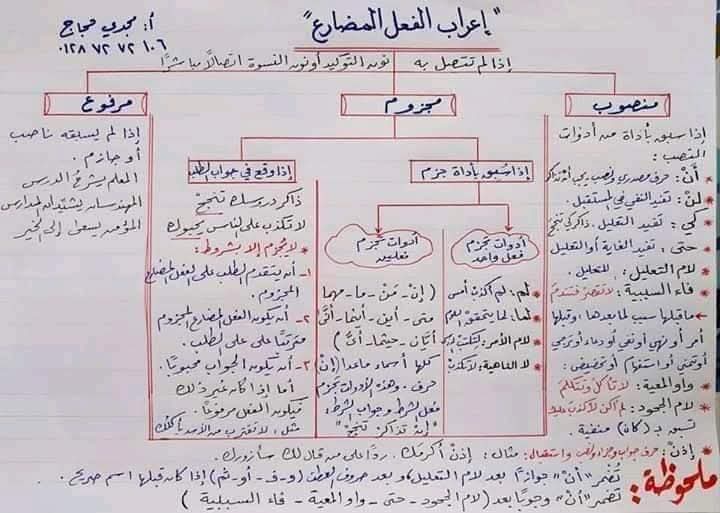 "إعراب الفعل المضارع"
أ: مجدي محاج
٠١٢٨ ٧٢ ٧٢ ١٠٦
إذا لم تتصل به نون التوكيد أو نون النسوة اتصالًا مباشرًا
منصوب
إذا سبق بأداة من أدوات
النصب:
* أنْ: حرف مصدري ونصب يجب أن تذاكر
* لنْ: تفيد النفي في المستقبل.
* كي: تفيد التعليل. ذاكر كي تنجح
* حتى: تفيد الغاية أو التعليل
* لام التعليل: للتعليل.
* فاء السببية: لا تقصر فتندم
← ما قبلها سبب لما بعدها، وقبلها
أمر أو نهي أو نفي أو دعاء أو ترجي
أو تمني أو استفهام أو تحضيض.
* واو المعية: لا تأكل وتتكلم
* لام الجحود: لم أكن لأكذب
تسبق بـ (كان) منفية.
* إذنْ: حرف جواب وجزاء ونصب واستقبال: مثال: إذنْ أكرمك. ردًا على من قال لك سأزورك.
مجزوم
إذا سُبق بأداة جزم
أدوات تجزم
فعل واحد
* لم: لم أكذب أمس
* لما: لما يتحقق
* لام الأمر: لتكتب
* لا الناهية: لا تكذب
أدوات تجزم
فعلين
( إنْ - مَنْ - ما - مهما
متى - أين - أينما - أنَّى
أيّان - حيثما - أيُّ )
كلها أسماء ماعدا (إنْ)
حرف. وهذه الأدوات تجزم
فعل الشرط وجواب الشرط:
"إنْ تذاكرْ تنجحْ"
إذا وقع في جواب الطلب
ذاكر دروسك تنجحْ
لا تكذب على الناس يحبوك
* لا يُجزم إلا بشروط:
١- أن يتقدم الطلب على الفعل المضارع
المجزوم.
٢- أن يكون الفعل المضارع المجزوم
مترتبًا على الطلب.
٣- أن يكون الجواب محبوبًا.
أما إذا كان غير ذلك
فيكون الفعل مرفوعًا.
مثل: لا تقترب من الأسد يأكلُك
مرفوع
إذا لم يسبقه ناصب
أو جازم.
المعلم يشرحُ الدرس
المهندسان يشيدان المدارس
المؤمن يسعى إلى الخير
ملحوظة:
تُضمر "أنْ" جوازًا بعد لام التعليل، وبعد حروف العطف (و - ف - أو - ثم) إذا كان قبلها اسم صريح.
تُضمر "أنْ" وجوبًا بعد (لام الجحود - حتى - واو المعية - فاء السببية)